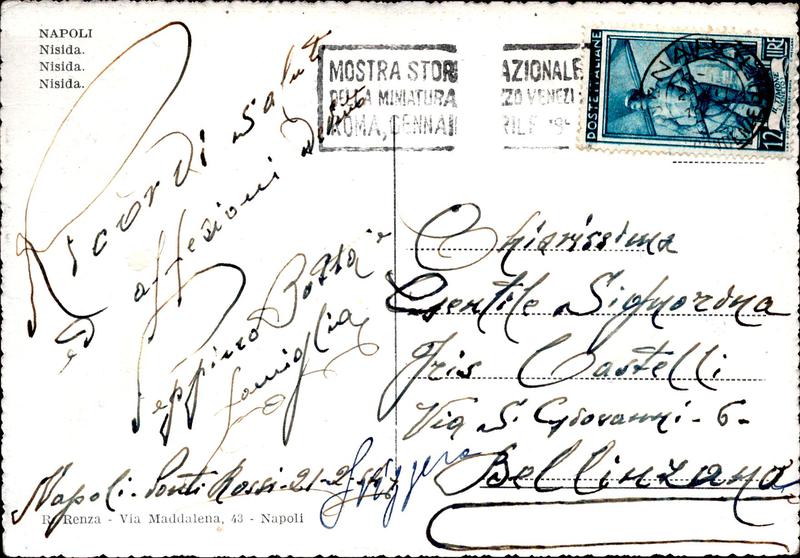 NAPOLI
Nisida.
Nisida.
Nisida.
Ricordi saluti
ed affezioni
Peppino Botta e
famiglia
Napoli. Ponti Rossi - 21-2-
R. Renza - Via Maddalena, 43 - Napoli
MOSTRA STOR AZIONALE
DELLA MINIATURA ZZO VENEZI
ROMA, GENNAI RILE 195
POSTE ITALIANE
LIRE
12
NA
Chiarissima
Gentile Signorina
Iris Castelli
Via S. Giovanni - 6 -
Bellinzona
Svizzera